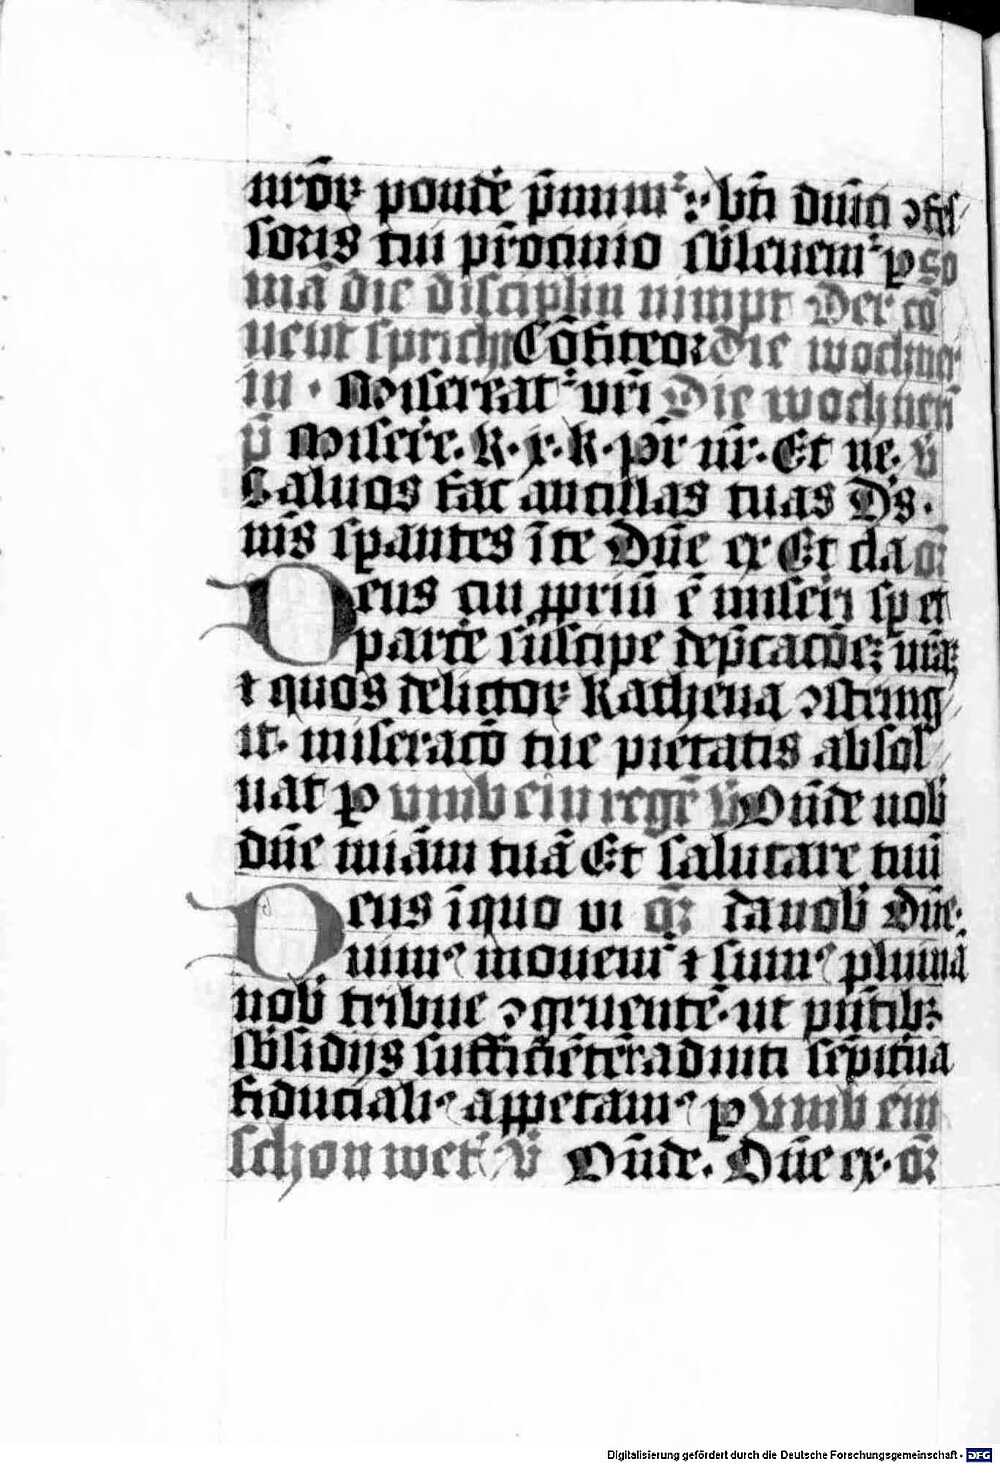 nr̄oꝝ ponde p̄mimur : bt̄i dn̄ici ꝯfes
soris tui pr̄ocinio sb̄leuemur ꝑ So
man̄ die disciplin nimpt Der co
uent spricht Cōfiteor Die wochneri
in · Misereatur vr̄i Die wochneri
v̄ Misere. k. x. k. pr̄ nr̄. Et ne. v̄
Saluos fac ancillas tuas Ds̄.
ms̄ sperantes ī te Dn̄e ex Et cla or̄
Deus cui ꝓpriū ē miseri sꝑ et
parcē suscipe dep̄cacōeꝫ nr̄aꝫ
⁊ quos delictoꝝ kathena ꝯstring
it. miseracō tue pietatis absol
uat ꝑ vmb ein regē v̄ Ostn̄de nob̄
dn̄e mi̅am tuā Et salutare tuū
Deus ī quo vi or̄ da nob̄ Dn̄e
uimꝰ mouemur ⁊ sumꝰ pluuiā
nob̄ tribue ꝯgruentē. ut pn̄tibꝫ
sb̄sidijs sufficiēter adiuti sēpit̄na
fiducialiꝰ appetamꝰ ꝑ vmb ein
schon weter v̄ Ostn̄de. Dn̄e ex. or̄
Digitalisierung gefördert durch die Deutsche Forschungsgemeinschaft - DFG